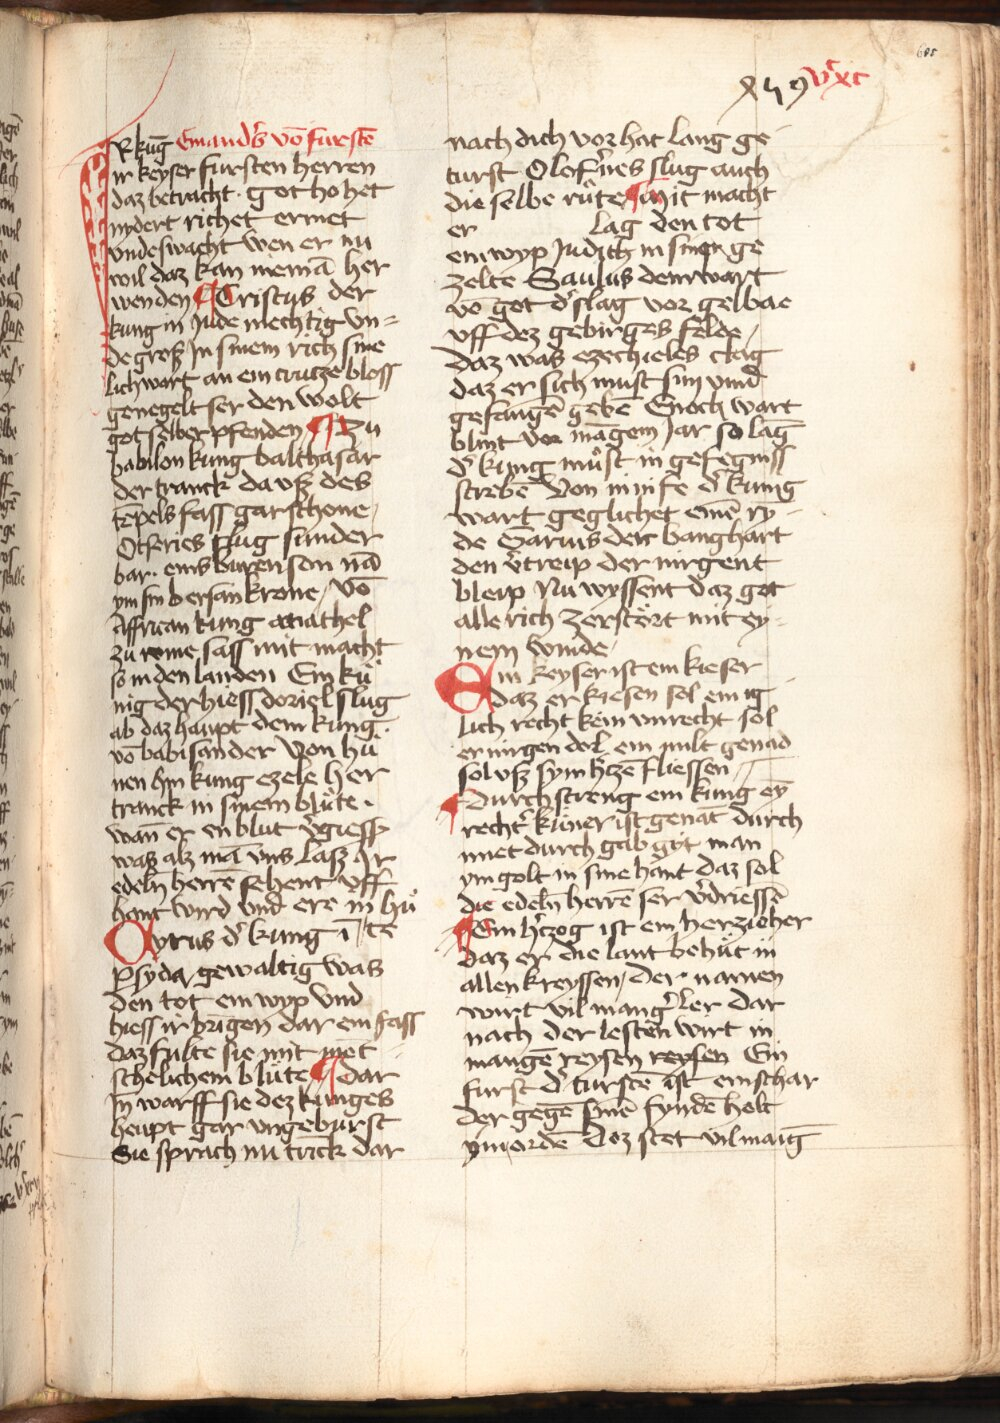 IR kūg Emands võ furstē
ir keyser fursten herren
daz betracht · got ho het
nydert richet ermet
vnd eswacht wen er nu
wil daz kan niemā her
wenden ¶ Cristus der
kung in Jude mechtig vn=
de groß In sinem rich sine
lich wart an ein crutze bloss
genegelt ser den wolt
got selber pfenden ¶ Zu
babilon kung balthasar
der tranck da vß des
tēpels fass gar schone /
Otseries slug sunder
bar · eins buren son nā
ym sin bersan krone / võ
Affrican kung anathel
zu rome sass mit macht
so in den landen Ein kü
nig der hiess doriel slug
ab daz haupt dem kung
võ babisander Von hü
nen hin kung ezele her
tranck in sinem blůte ·
wan er en blut v̄giess
was alz mā vns lasz Ir
edeln herrē sehent vff
hant wird vnd ere in hů
Cyrus d' kung ī te
Psyda gewaltig was
den tot ein wyp vnd
hiess ir bringen dar ein fass
daz fulte sie mit mēt
schelichem blůte ¶ dar
In warff sie dez kunges
heupt gar vngeburst
Sie sprach nu trīck dar
nach dich vor hat lang ge
turst Olofernes slug auch
die selbe růte ¶ mit macht
er lag den tot
ein wyp Judith in sinen ge
zelte Saulus dem wart
võ got d' slag vor gelbae
vff dez gebirges felde /
daz was ezechieles clag
daz er sich must sim vind
gefangē gebē Enoch wart
blint vor māgem Jar so lag
d' kung můst in gefegniss
sterbē Von ninife d' kunig
wart geglichet einē ry
de Darius der banghart
den v̄treip der nirgent
bleip Nu wyssent daz got
alle rich zerstört mit ey
nem winde /
Ein keyser ist ein kieser
daz er kiesen sol ein ig
lich recht kein vnrecht sol
er nirgen dol ein milt genad
sol vß sym h'tzē fliessen
¶ durch streng ein kung ey
recht' küner ist genāt durch
miet durch gab git man
ym golt in sine hant daz sol
die edelη herrē ser v̄driessē
¶ Ein h'czog ist ein herzieher
daz er die lant behůt in
allen kreyssen / der namen
wirt vil mang' ler dar
nach der lesten wirt in
mangē reysen reysen Ein
furst d' turstē ist ein schar
der gegē sinē fyndē helt
ym ordē Doz stet vil maīg